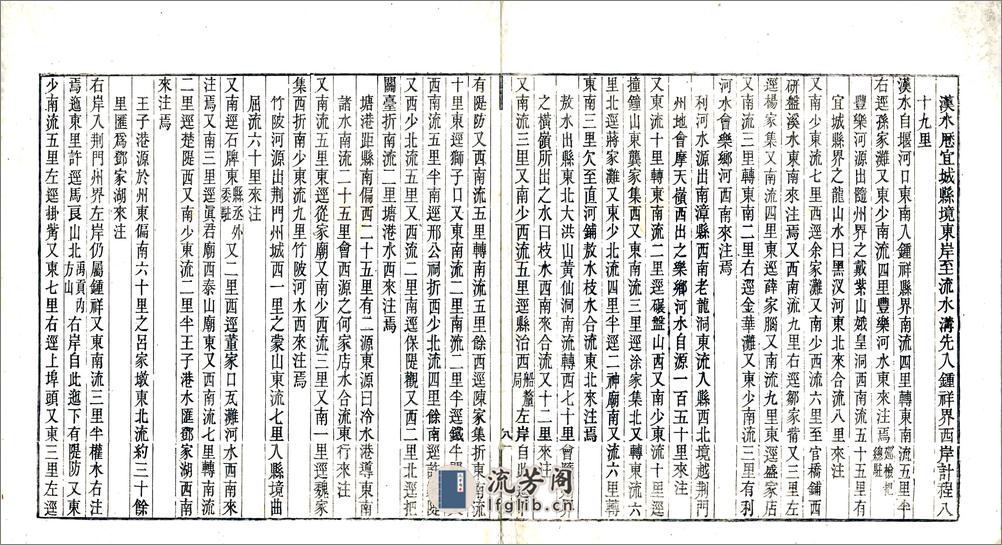 漢水歷宜城縣境東岸至流水溝先入鍾祥界西岸計程八
十九里
漢水自堰河口東南入鍾祥縣界南流四里轉東南流五里半
右逕孫家灘又東少南流四里豐樂河水東來注焉
豐樂河源出隨州界之戴紫山娥皇洞西南流五十里有
宜城縣界之龍山水曰黑汊河東北來合流八里來注
又南少東流七里西逕余家灘又南少西流六里至官橋鋪西
研盤溪水東南來注焉又西南流九里右逕鄒家嘴又三里左
逕楊家集又南流四里東逕薛家腦又南流九里東逕盛家店
又南流三里轉東南二里右逕金華灘又東少南流三里有利
河水會樂鄉河西南來注焉
利河水源出南漳縣西南老龍洞東流入縣西北境越荆門
州地會摩天嶺西出之樂鄉河水自源一百五十里來注
又東流十里轉東南流二里逕碾盤山西又南少東流十里逕
撞鐘山東龔家集西又東南流三里逕涂家集北又轉東流六
里北逕蔣家灘又東流三里又東少北流四里半逕二神廟南又流六里轉
東南三里欠至直河鋪敖水枝水合流東北來注焉
敖水出縣東北大洪山黃仙洞南流轉西七十里會
之橫嶺所出之水曰枝水西南來合流又十二里來注
又南流三里又南少西流五里逕縣治西左岸自此
有隄防又西南流五里轉南流五里餘西逕陳家集折東南流
十里東逕獅子口又東南流二里南流二里半逕鐵牛
西南流五里半南逕邢公祠折西少北流四里餘南逕許
又西少北流五里又西流二里轉南流二里逕保隄觀又西二里北逕把
關臺折南流二里塘港水西來注焉
塘港距縣南偏西二十五里有二源東源曰冷水港導東南
諸水南流二十五里會西源之何家店水合流東行來注
又南流五里東逕從家廟又南少西流三里又南一里逕魏家
集西折南少東流九里竹陂河水西來注焉
竹陂河源出荆門州城西一里之蒙山東流七里入縣境曲
屈流六十里來注
又南逕石牌東縣丞外委駐又二里西逕董家口瓦灘河水西南來
注焉又南三里逕眞君廟西泰山廟東又西南流七里轉南流
二里逕楚隄西又南少東流二里半王子港水匯鄧家湖西南
來注焉
王子港源於州東偏南六十里之呂家墩東北流約三十餘
里匯爲鄧家湖來注
右岸入荆門州界左岸仍屬鍾祥又東南流三里半權水右注
焉迤東里許逕馬良山北禹貢內方山右岸自此迤下有隄防又東
少南流五里左逕掛觜又東七里右逕上埠頭又東三里左逕
八
流芳阁
lfglib.com